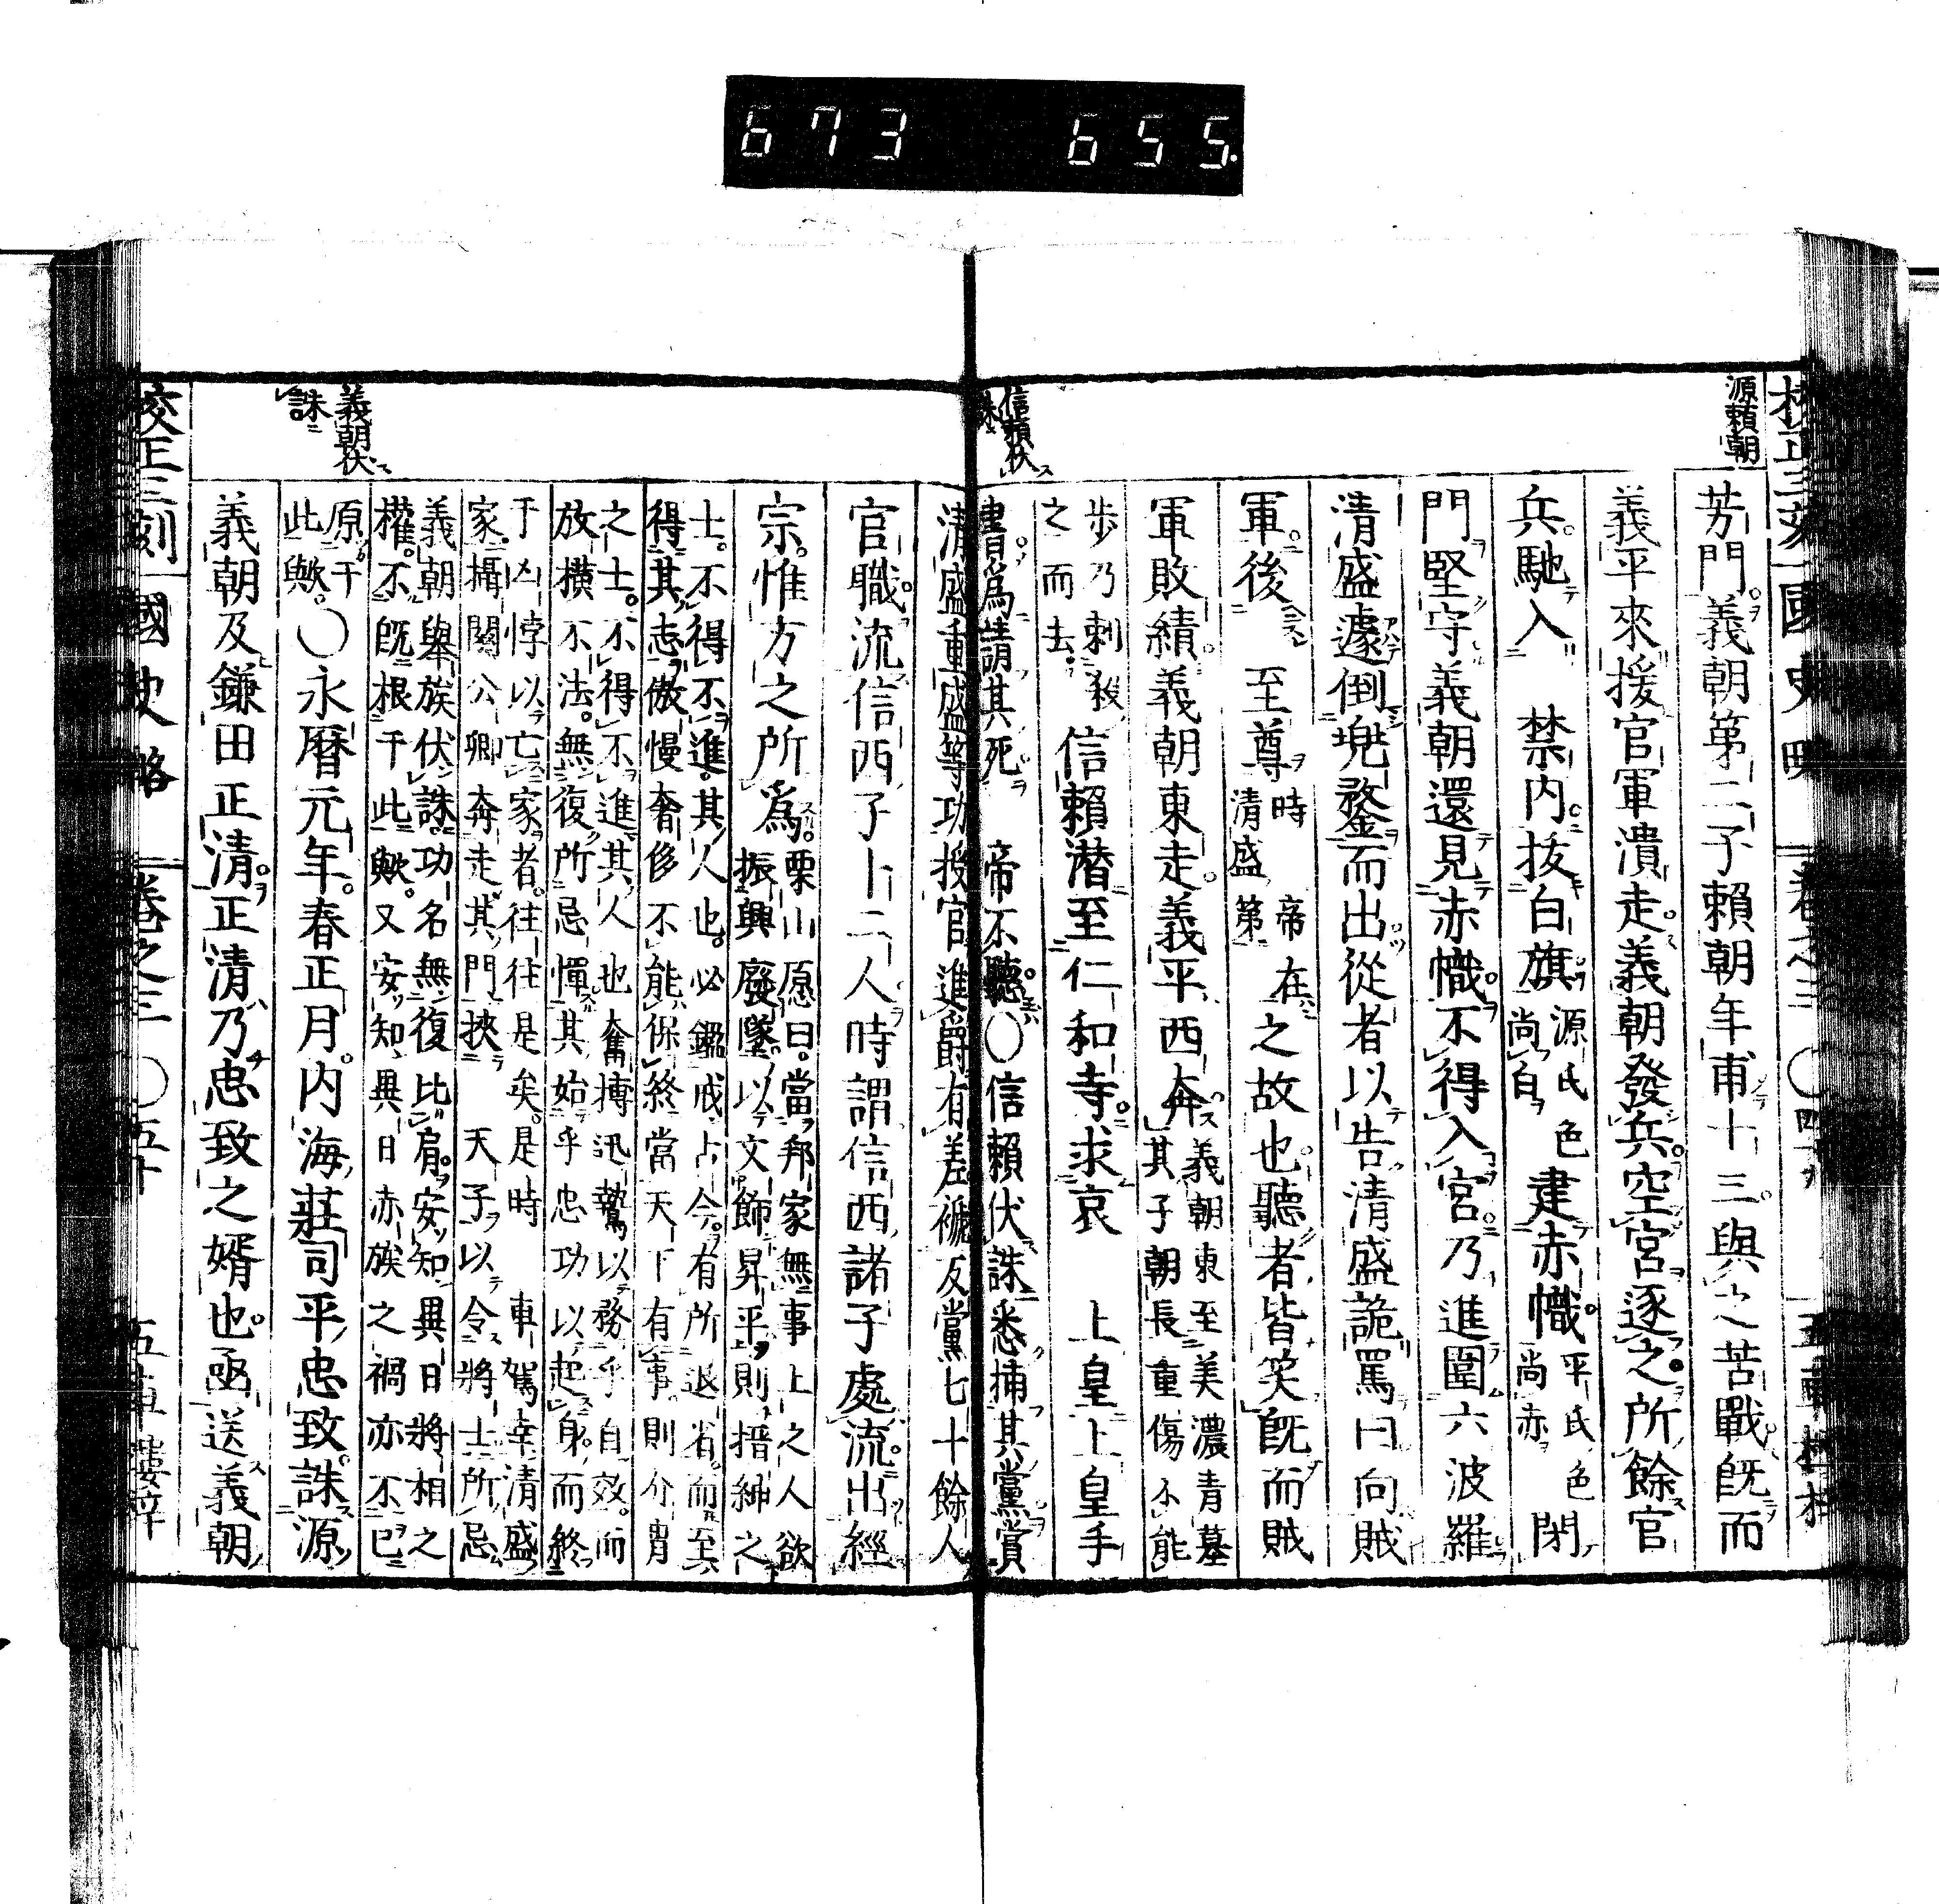 673 655.
源頼朝
芳門。義朝第三子頼朝年甫十三。與之苦戰。既而
義平來援官軍潰走。義朝發兵。空宮逐之。所餘官
兵。馳入 禁内。抜白旗。源氏色尚白建赤幟。平氏色尚赤閉
門堅守義朝還見赤幟。不得入宮。乃進圍六波羅
清盛遽倒兜鍪而出從者以告清盛詭罵曰向賊
軍。後 至尊時 帝在清盛第之故也聽者皆笑既而賊
軍敗績。義朝東走。義平西奔。義朝東至美濃青墓其子朝長重傷不能
歩乃刺殺之而去。信賴潜至仁和寺。求哀 上皇上皇手
書爲請其死 帝不聽。〇信賴伏誅悉捕其黨賞
信賴伏誅
清盛重盛等功授官進爵有差。褫反黨七十餘人
官職。流信西子十二人。時謂信西諸子處流。出經
宗。惟方之所爲。栗山愿曰。當邦家無事上之人欲振興廢墜。以文飾昇平。則搢紳之
士。不得不進。其人也。必鑑戒占今。有所退省。而至
得其志傲慢奢侈不能保終當天下有事則介冑
之士。不得不進其人也奮搏迅鷙以務乎自效。而
放横不法。無復所忌憚其始乎忠功以起身。而終
于凶悖以亡家者。往往是矣。是時 車駕幸清盛
家。攝關公卿奔走其門挾 天子以令將士所忌
義朝舉族伏誅。功名無復比肩。安知異日將相之
權。不既根于此歟。又安知異日赤族之禍亦不已
原于此歟。〇永曆元年。春正月。内海莊司平忠致。誅源
義朝伏誅
義朝及鎌田正清。正清乃忠致之婿也。函送義朝
校正三刻 國史略 卷之三 〇五十 五車樓梓